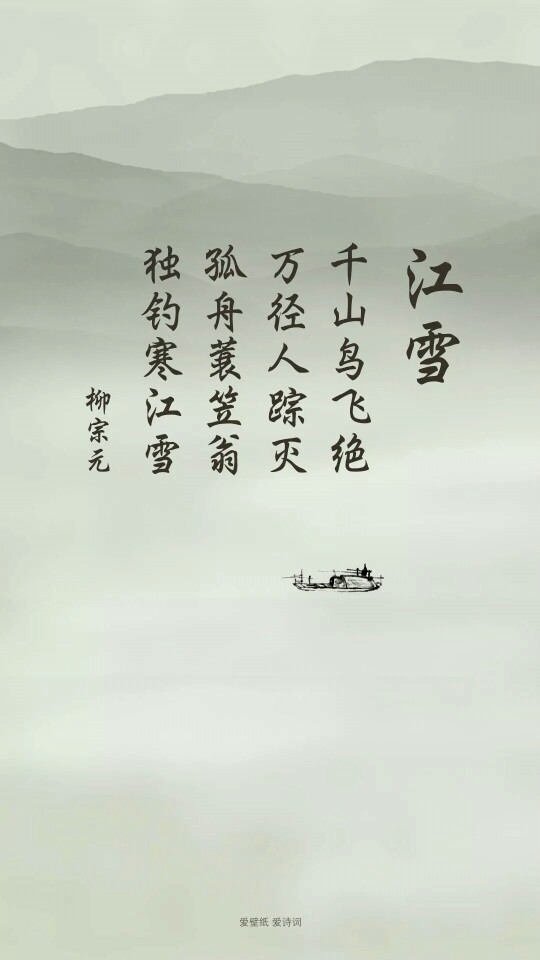 江雪
千山鸟飞绝
万径人踪灭
孤舟蓑笠翁
独钓寒江雪
柳宗元
爱壁纸 爱诗词